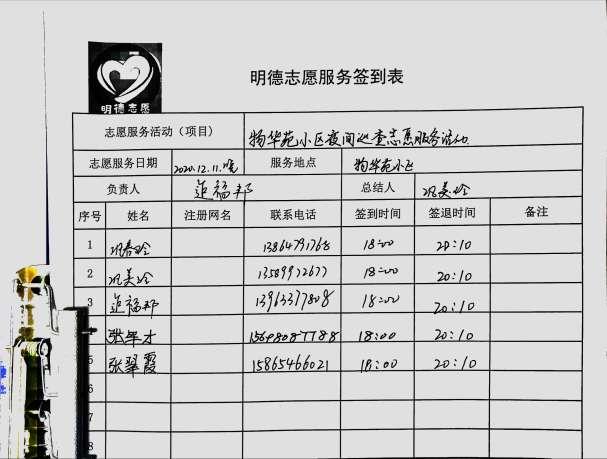 明德志愿服务签到表
明德志愿
志愿服务活动（项目） 物华苑小区夜间巡查志愿服务活动
志愿服务日期 2020.12.11.晚 服务地点 物华苑小区
负责人 福邦 总结人 巩美玲
序号 姓名 注册网名 联系电话 签到时间 签退时间 备注
1 巩春玲 13864791768 18:00 20:10
2 巩美玲 13589972677 18:00 20:10
3 福邦 13963377808 18:00 20:10
张军才 18:00 20:10
5 张翠霞 15865466021 18:00 20:10
6
7
8